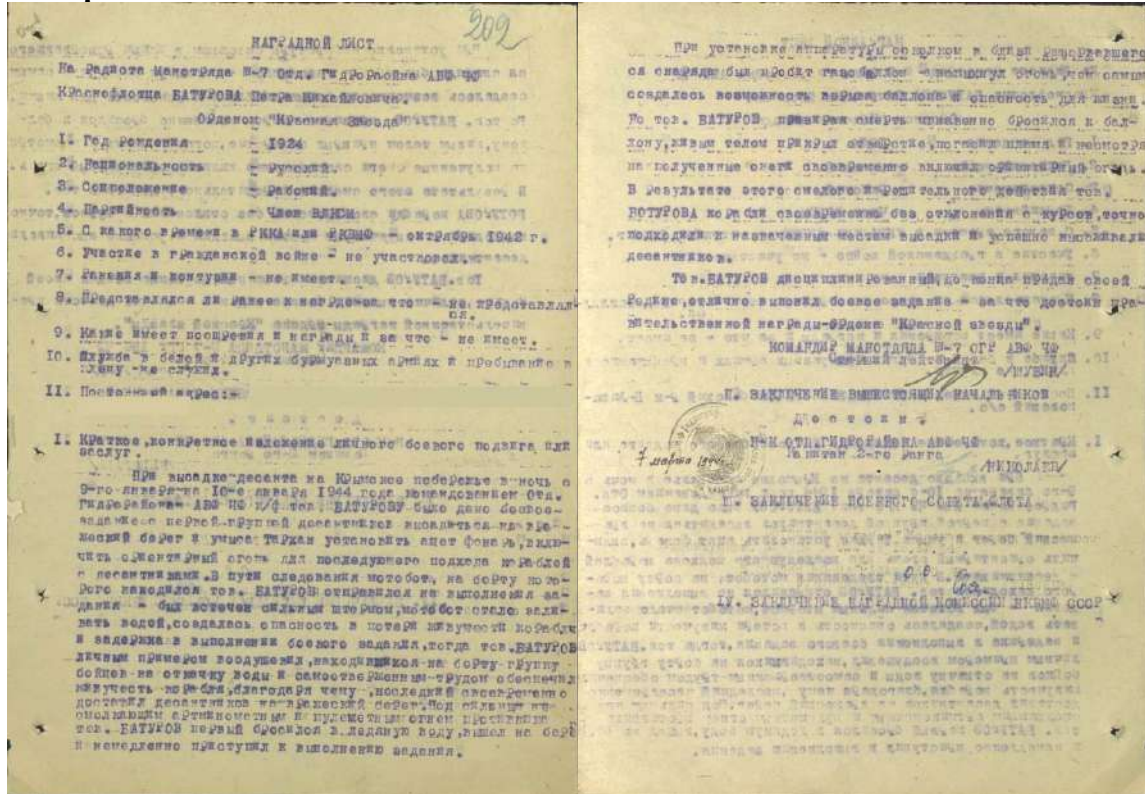 202
НАГРАДНОЙ ЛИСТ
На Радиста Манотряда №-7 Отд. Гидрораойна АВФ ЧФ
Краснофлотца БАТУРОВА Петра Михайловича.
Орденом "Красная Звезда"
1. Год рождения - 1924
2. Национальность - Русский.
3. Соцположение - Рабочий.
4. Партийность - Член ВЛКСМ
5. С какого времени в РККА или РКВМФ - октябрь 1942 г.
6. Участие в гражданской войне - не участвовал.
7. Ранения и контузии - не имеет.
8. Представлялся ли ранее к награде за что - не представлял-
ся.
9. Какие имеет поощрения и награды и за что - не имеет.
10. Служба в белой и других буржуазных армиях и пребывание в
плену - не служил.
11. Постоянный адрес:-
1. Краткое, конкретное изложение личного боевого подвига или
заслуг.
При высадке десанта на Крымское побережье в ночь с
9-го января на 10-е января 1944 года командованием Отд.
Гидрорайона АВФ ЧФ к/ф тов. БАТУРОВУ было дано боевое-
задание с первой группой десантников высадиться на вра-
жеский берег и у мыса Тархан установить ацет фонарь, вклю-
чить ориентирный огонь для последующего подхода кораблей
с десантниками. В пути следования мотобот, на борту кото-
рого находился тов. БАТУРОВ отправился на выполнения за-
дания - был встречен сильным штормом, мотобот стало зали-
вать водой, создалась опасность в потери живучести корабля
и задержка в выполнении боевого задания, тогда тов. БАТУРОВ
личным примером воодушевил, находившихся на борту группу
бойцов на откачку воды и самоотверженным трудом обеспечил
живучесть корабля, благодаря чему, последний своевременно
доставил десантников на вражеский берег. Под сильным не-
смолкающим артминометным и пулеметным огнем противника
тов. БАТУРОВ первый бросился в ледяную воду, вышел на бере
и немедленно приступил к выполнению задания.
При установке аппаратуры осколком в близи разорвавшего
ся снаряда был пробит газобаллон - вспыхнул огонь, тем самым
создалось возможность взрыва баллона и опасность для жизни
Но тов. БАТУРОВ презирая смерть мгновенно бросился к бал-
лону, живым телом прикрыл отверстие, погасил пламя и несмотря
на полученные ожеги своевременно включил ориентирный огонь.
В результате этого смелого и решительного действия тов.
БОТУРОВА корабли своевременно без отклонения с курсов, точно
подходили к назначенным местам высадки и успешно высаживали
десантников.
Тов. БАТУРОВ дисциплинированный, до конца предан своей
Родине, отлично выполнил боевое задание - за что достоин пра-
вительственной награды-ордена "Красной звезды".
КОМАНДИР МАНОТРЯДА №-7 ОГР АВФ ЧФ
Старший лейтенант
/ШУБИН/
II. ЗАКЛЮЧЕНИЕ ВЫШЕСТОЯЩИХ НАЧАЛЬНИКОВ
Достоин.
Н-К ОТД. ГИДРОРАЙОНА АВФ ЧФ
Капитан 2-го ранга
/НИКОЛАЕВ/
7 марта 1944г.
III. ЗАКЛЮЧЕНИЕ ВОЕННОГО СОВЕТА ФЛОТА
IV. ЗАКЛЮЧЕНИЕ НАГРАДНОЙ КОМИССИИ НКВМФ СССР